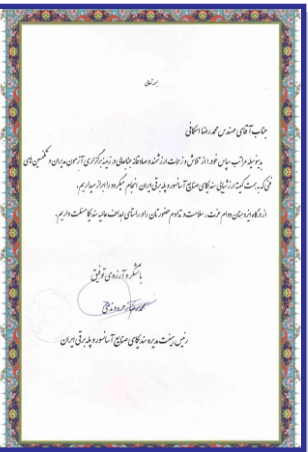 بسمه تعالی
جناب آقای مهندس محمدرضا
بدینوسیله مراتب سپاس خود را از تلاش و زحمات ارزشمند و صادقانه جنابعالی در زمینه برگزاری آزمون مدیران و تکنسین های
فنی که به همت کمیته ارزشیابی سندیکای صنایع آسانسور و پله برقی ایران انجام میگردد را ابراز میداریم.
از درگاه ایزد منان دوام عزت، سلامت و تداوم حضورتان را در راستای اهداف عالیه سندیکا مسئلت داریم.
با تشکر و آرزوی توفیق
رئیس هیئت مدیره سندیکای صنایع آسانسور و پله برقی ایران